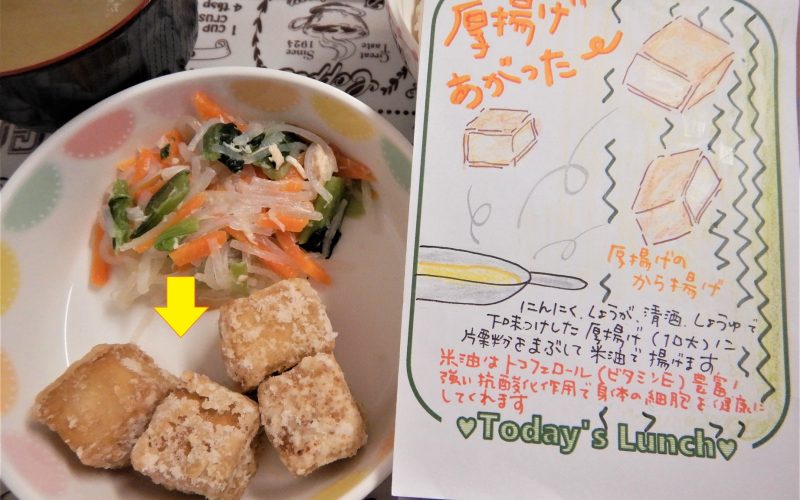 4
tbsp
CRUST
1 CUP
Great
Taste
Since
1924
厚揚げ
あがった
厚揚げの
から揚げ
にんにく、しょうが、清酒、しょうゆで
下味つけした厚揚げ(10大)に
片栗粉をまぶして米油で揚げます
米油はトコフェロール(ビタミンE)豊富!
強い抗酸化作用で身体の細胞を健康に
してくれます
♥Today's Lunch♥